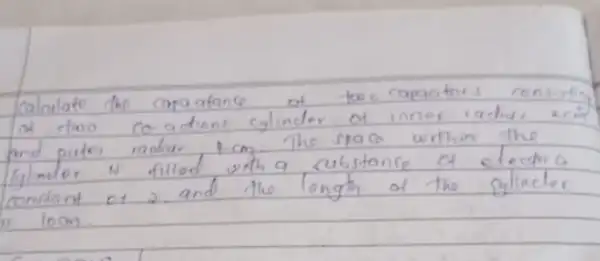 Calculate the capacitance of two capacitors consisting
of two co-axial cylinder of inner radius
and outer radius cm. The space within the
cylinder is filled with a substance of electric
constant of 2 and the length of the cylinder
is 10cm